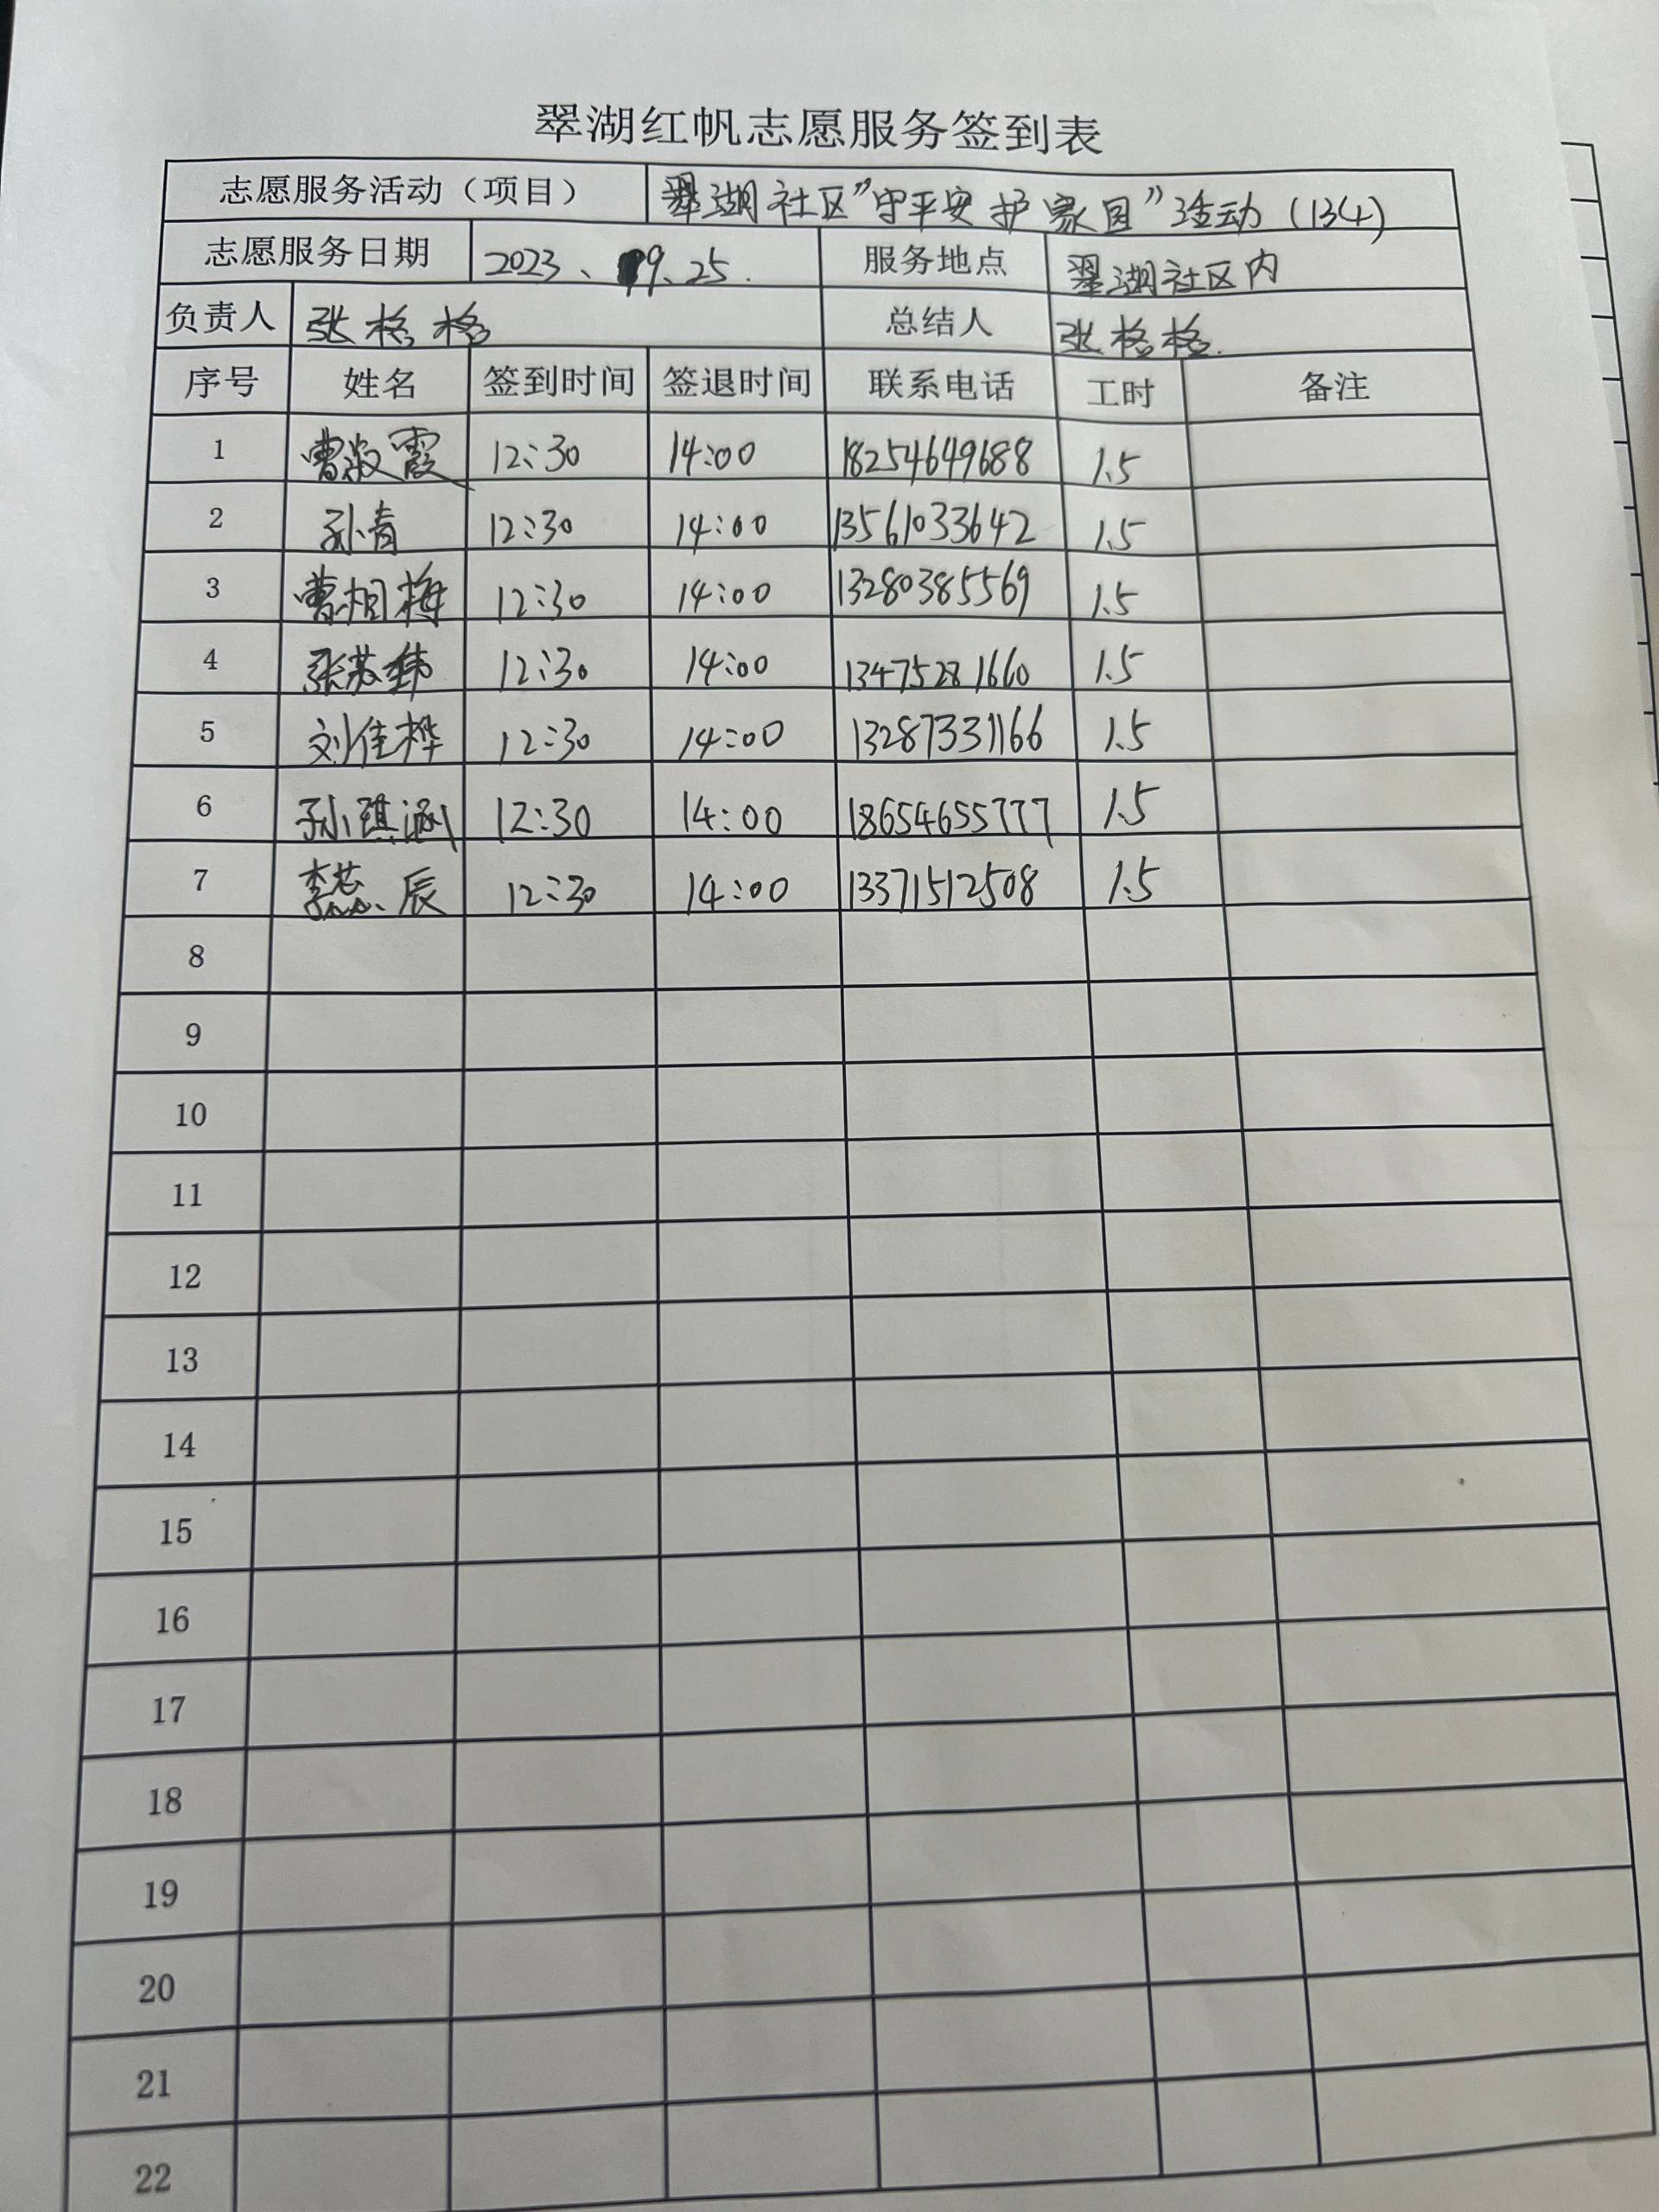 翠湖红帆志愿服务签到表
志愿服务活动（项目） 翠湖社区”守平安护家园”活动（134）
志愿服务日期 2023、9.25. 服务地点 翠湖社区内
负责人 张格格 总结人 张格格.
序号 姓名 签到时间 签退时间 联系电话 工时 备注
1 曹淑霞 12:30 14:00 18254649688 1.5
2 孙青 12:30 14:00 13561033642 1.5
3 曹相梅 12:30 14:00 13280385569 1.5
4 张苏 12:30 14:00 13475281660 1.5
5 刘佳桦 12:30 14:00 13287331166 1.5
6 孙琪涵 12:30 14:00 18654655777 1.5
7 李芯辰 12:30 14:00 13371512508 1.5
8
9
10
11
12
13
14
15
16
17
18
19
20
21
22